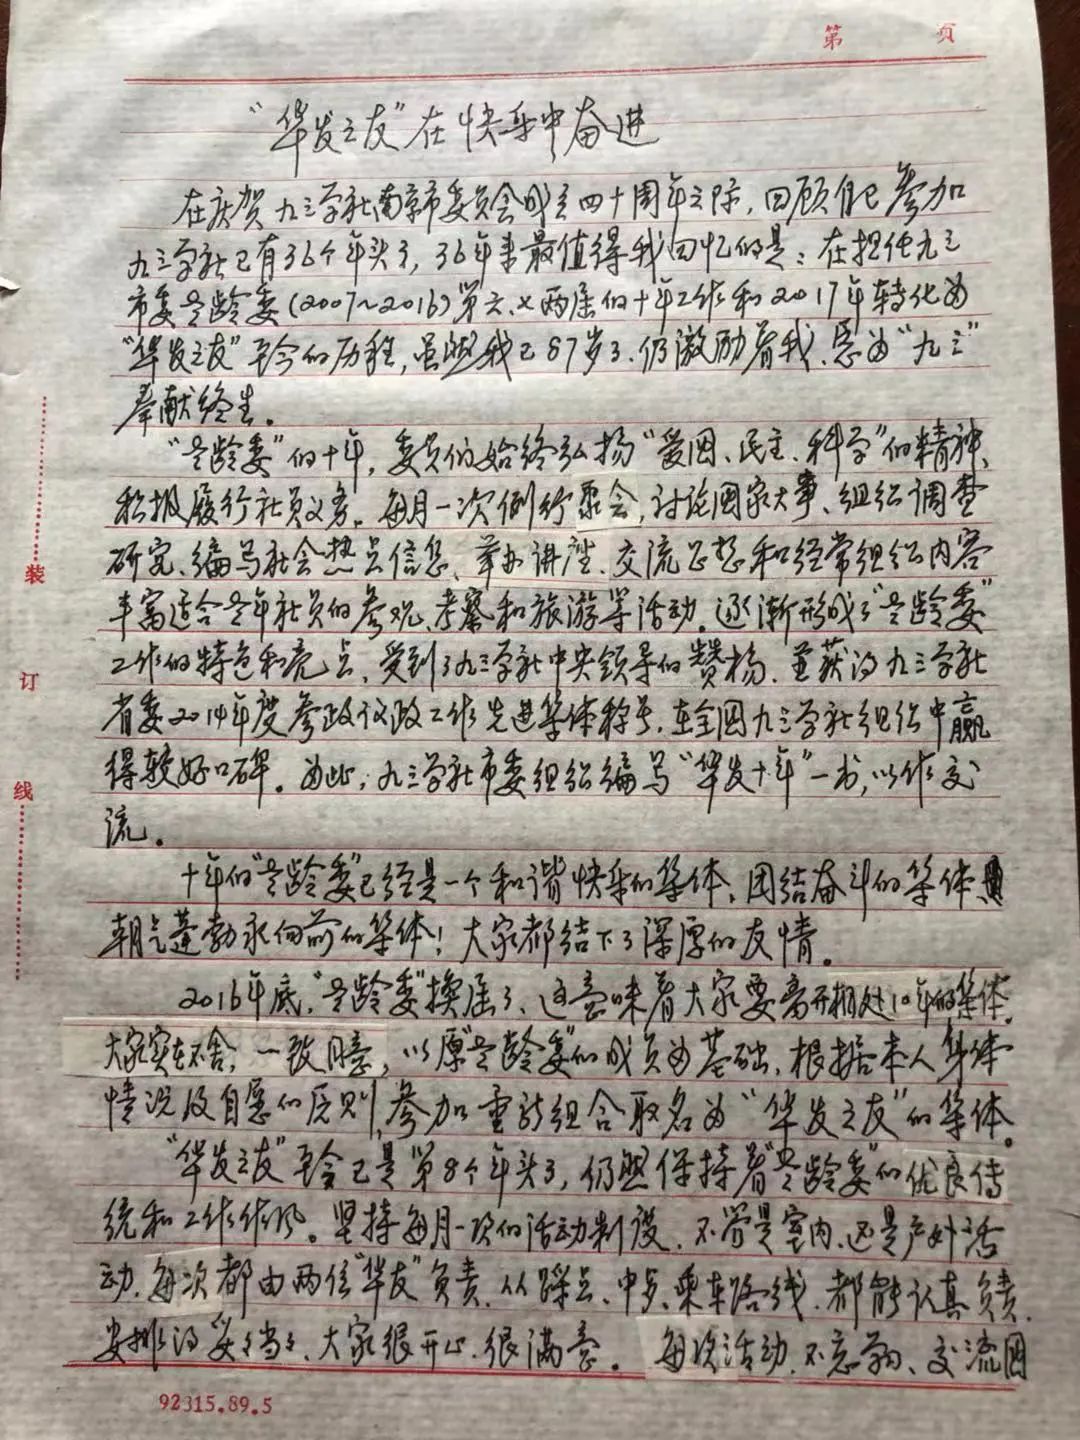 第 页
“华发之友”在快乐中奋进
在庆贺九三学社南京市委员会成立四十周年之际，回顾自己参加
九三学社已有36个年头了，36年来最值得我回忆的是：在担任九三
市委老龄委(2007~2016)第六、七两届的十年工作和2017年转化为
“华发之友”至今的历程，虽然我已87岁了、仍激励着我、愿为“九三”
奉献终生。
“老龄委”的十年，委员们始终弘扬“爱国、民主、科学”的精神、
积极履行社员义务。每月一次例行聚会，讨论国家大事、组织调查
研究、编写社会热点信息、举办讲座、交流思想和经常组织内容
丰富适合老年社员的参观、考察和旅游等活动。逐渐形成了“老龄委”
工作的特色和亮点，受到了九三学社中央领导的赞扬、并获得九三学社
省委2014年度参政议政工作先进集体称号，在全国九三学社组织中赢
得较好口碑。为此，九三学社市委组织编写“华发十年”一书，以作交
流。
十年的“老龄委”已经是一个和谐快乐的集体、团结奋斗的集体、
朝气蓬勃永向前的集体！大家都结下了深厚的友情。
2016年底，“老龄委”换届了、这意味着大家要离开相处10年的集体，
大家实在不舍，一致同意，以原“老龄委”的成员为基础，根据本人身体
情况及自愿的原则，参加重新组合取名为“华发之友”的集体。
“华发之友”至今已是第8个年头了，仍然保持着“老龄委”的优良传
统和工作作风。坚持每月一次的活动制度、不管是室内、还是户外活
动、每次都由两位“华友”负责、从踩点、中步、乘车路线、都能认真负责、
安排得妥妥当当、大家很开心、很满意。每次活动、不忘学习、交流国
装
订
线
92315.89.5